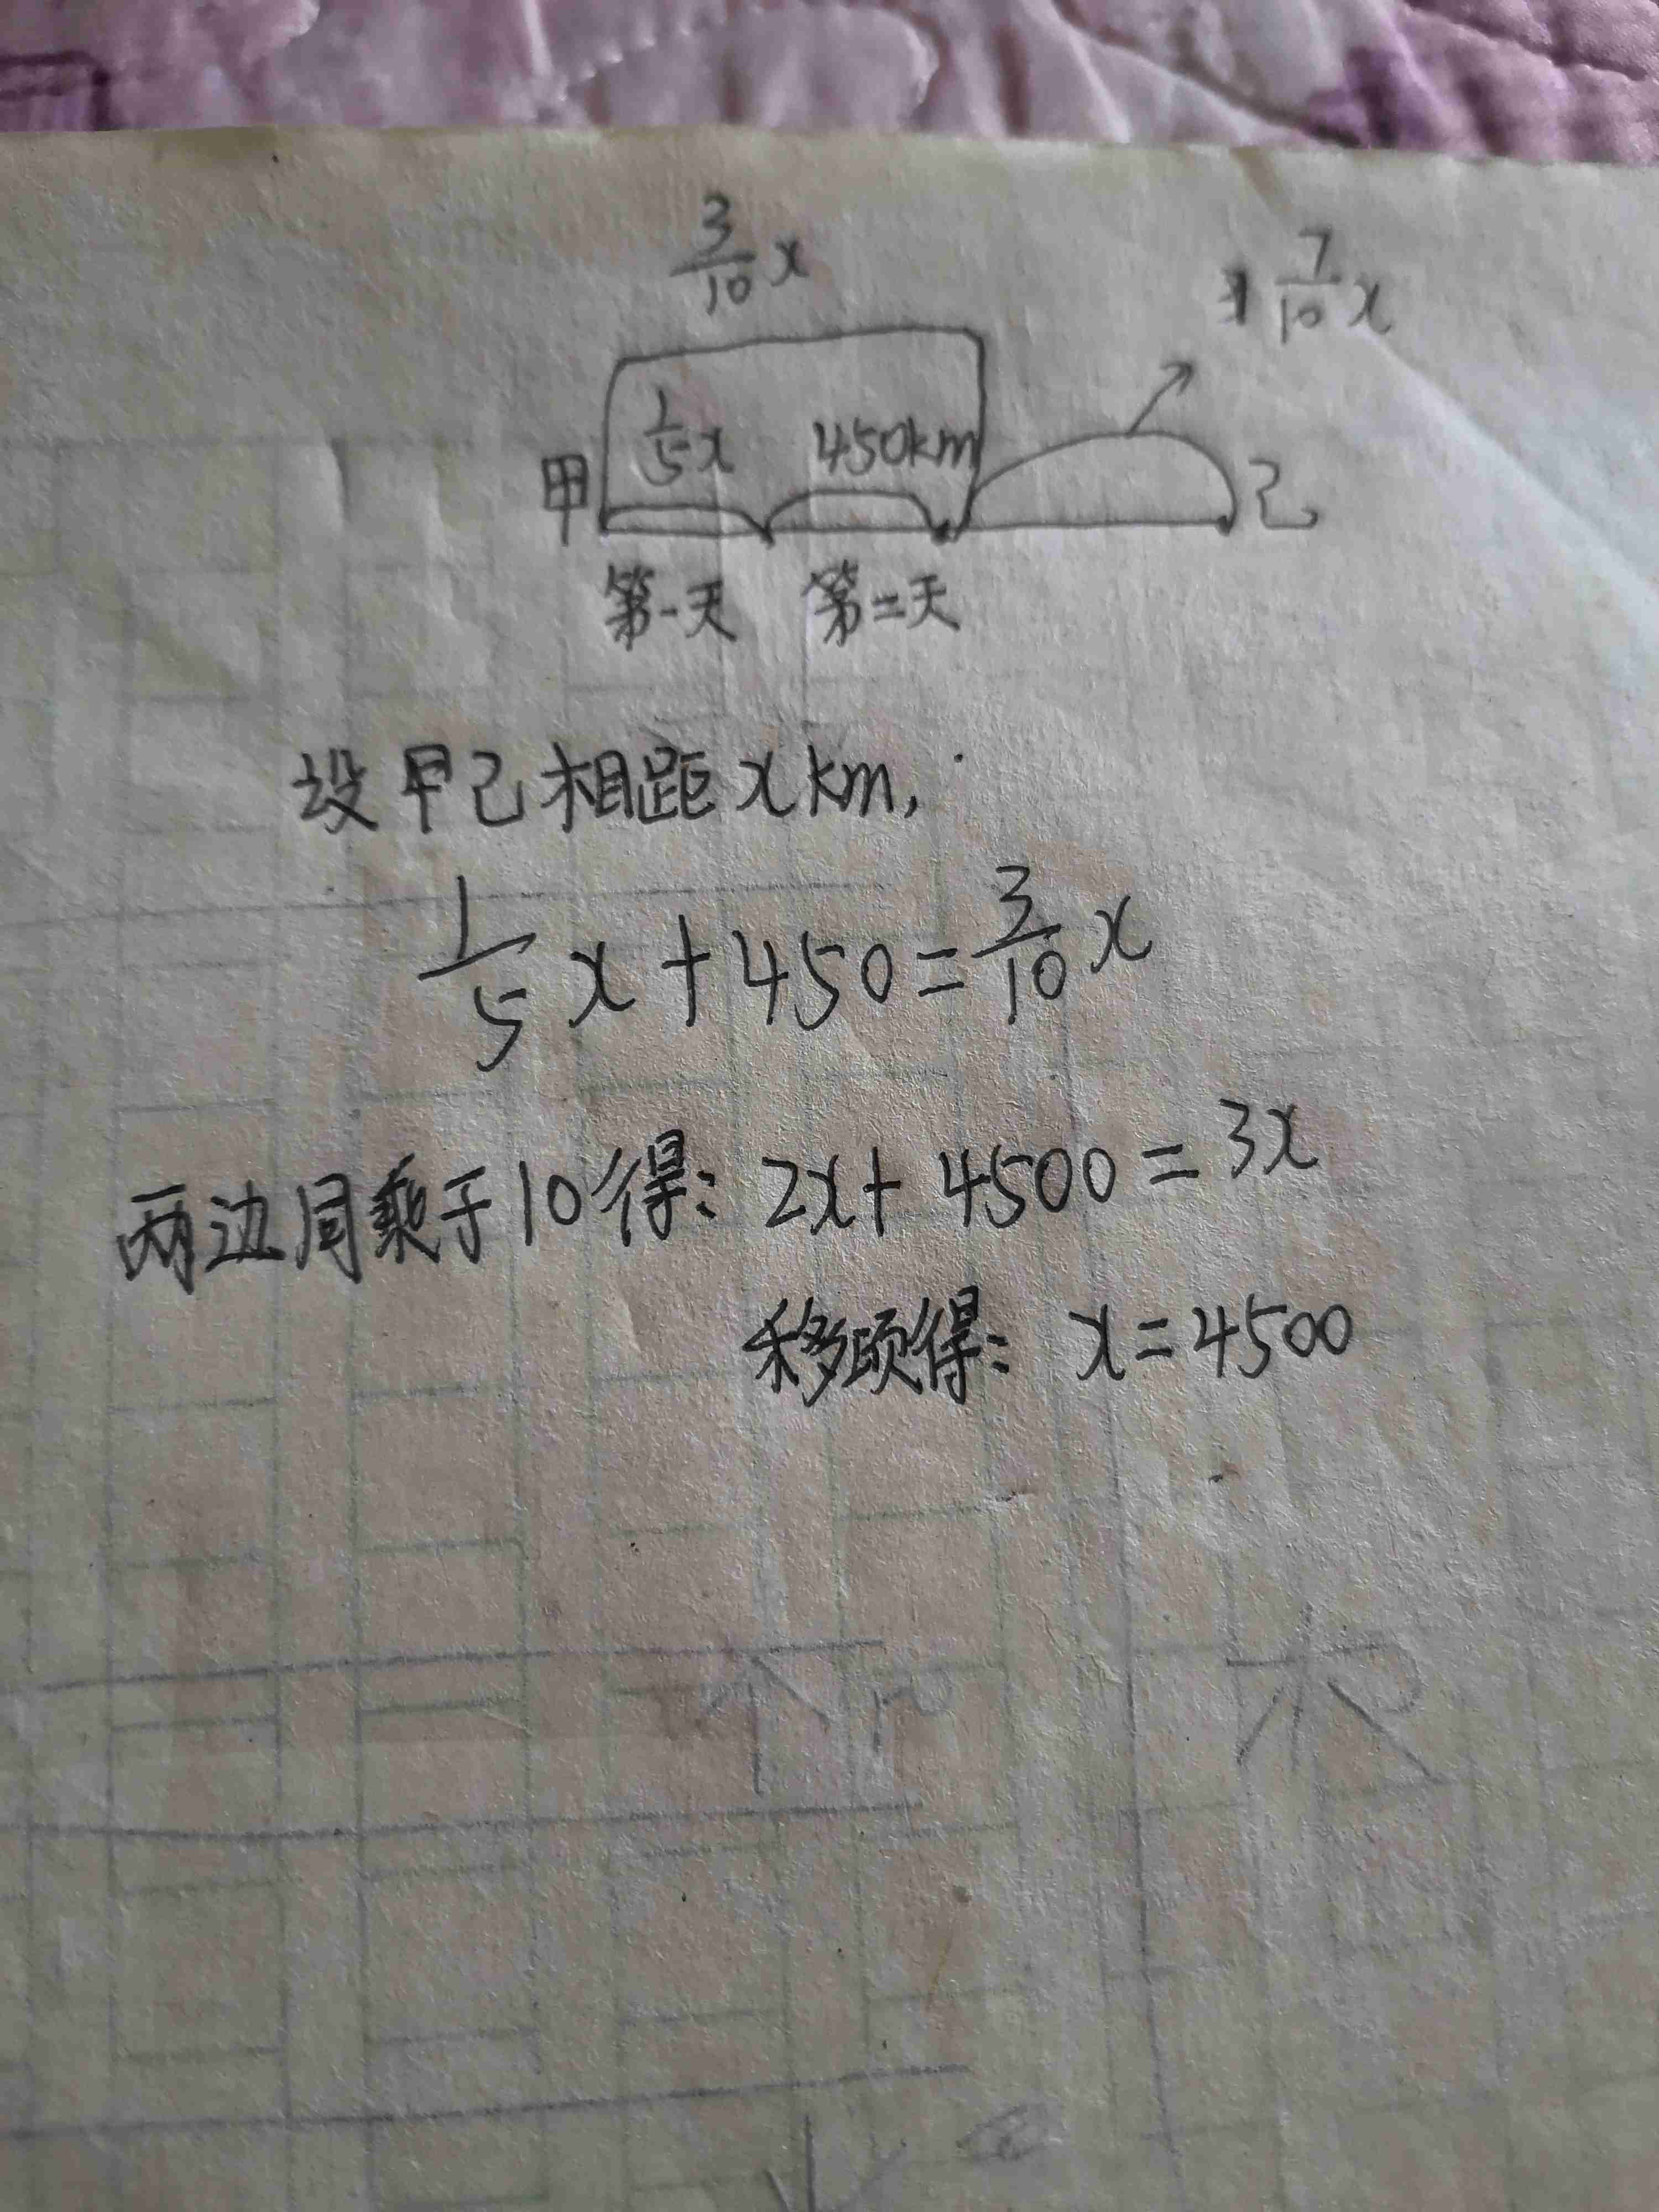 3/10 x
7/10 x
1/5 x 450km
甲 乙
第一天 第二天
设甲乙相距x km,
1/5 x + 450 = 3/10 x
两边同乘于10得: 2x + 4500 = 3x
移项得: x = 4500